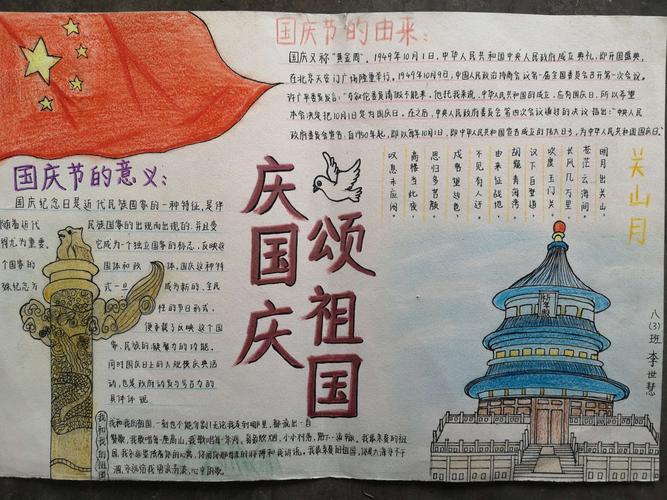 国庆节的由来:
国庆又称"黄金周"。1949年10月1日,中华人民共和国中央人民政府成立典礼,即开国盛典,
在北京天安门广场隆重举行。1949年10月9日,中国人民政治协商会议第一届全国委员会召开第一次会议。
许广平委员发言:"马叙伦委员请假不能来,他托我来说,中华人民共和国的成立,应有国庆日,所以希望
本会决定把10月1日定为国庆日。在之后,中央人民政府委员会第四次会议通过的决议指出:"中央人民
政府委员会宣告:自1950年起,即以每年10月1日,即中华人民共和国宣告成立的伟大日子,为中华人民共和国国庆日。"
关山月
明月出关山,
苍茫云海间。
长风几万里,
吹度玉门关。
汉下白登道,
胡窥青海湾。
由来征战地,
不见有人还。
戍客望边色,
思归多苦颜。
高楼当此夜,
叹息未应闲。
国庆节的意义:
国庆纪念日是近代民族国家的一种特征,是伴
随着近代民族国家的出现而出现的,并且变
得尤为重要。它成为一个独立国家的标志,反映这
个国家的国体和政体,国庆这种特
殊纪念方式一旦成为新的、全民
性的节日形式,
便承载了反映这个国
家、民族的凝聚力的功能。
同时国庆日上的大规模庆典活
动,也是政府动员与号召力的
具体体现
庆国庆
颂祖国
祈年殿
八(3)班 李世慧
我和我的祖国
我和我的祖国,一刻也不能分割!无论我走到哪里,都流出一首
赞歌。我歌唱每一座高山,我歌唱每一条河。袅袅炊烟,小小村落,路上一道辙。我最亲爱的祖
国,我永远紧依着你的心窝,